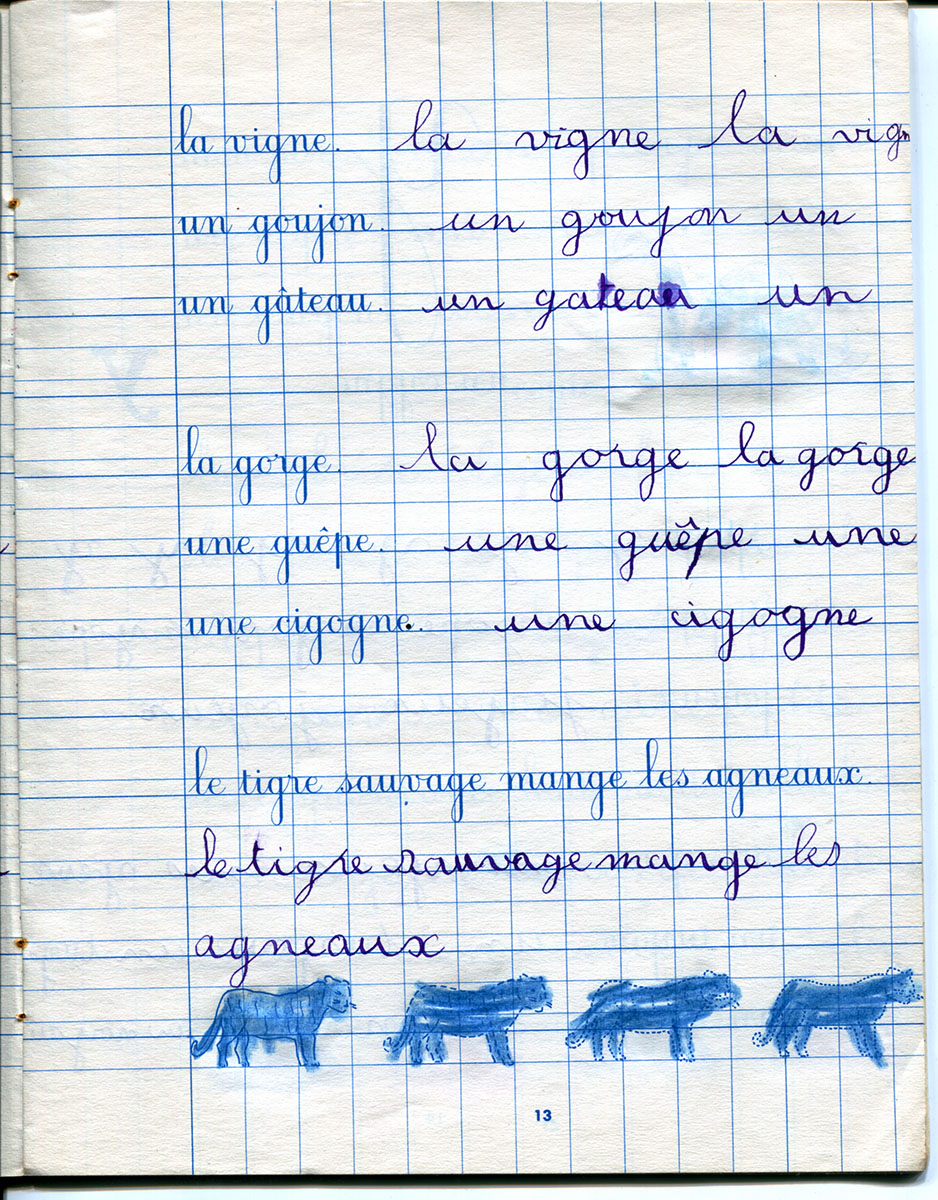 la vigne. la vigne la vign
un goujon. un goujon un
un gâteau. un gateau un
la gorge. la gorge la gorge
une guêpe. une guêpe une
une cigogne. une cigogne
le tigre sauvage mange les agneaux.
le tigre sauvage mange les
agneaux
13